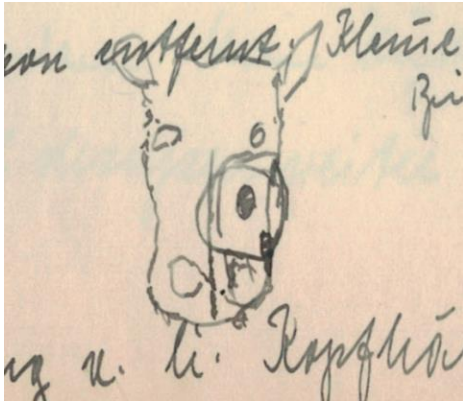 entfernt. Kleine
ng u. li. Kopfhä